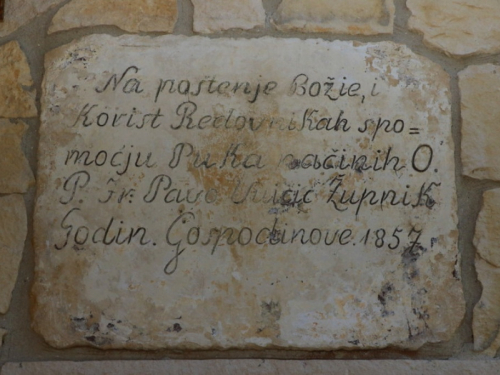 Na postenje Božie, i
Korist Redovnikah spo=
moćju Puka načinih O.
P. Fr. Pavo Župnik
Godin. Gospodinove. 1857.